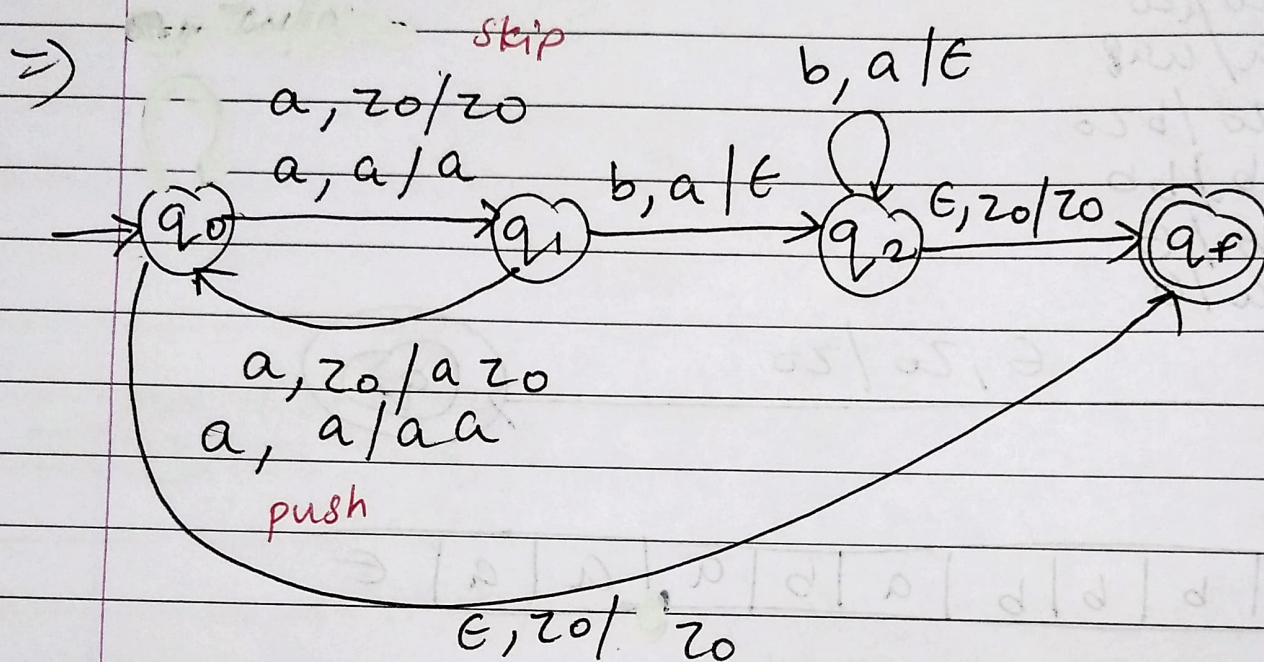 skip
=)
b, a/ε
a, z0/z0
a, a/a
b, a/ε
ε, z0/z0
q0
q1
q2
qf
a, z0/a z0
a, a/aa
push
ε, z0/ z0